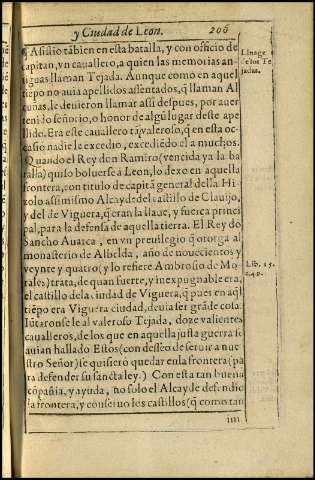 y Ciudad de Leon. 206
Asistio tãbien en esta batalla, y con officio de
capitan, vn cauallero, a quien las memorias an-
tiguas llaman Tejada. Aunque como en aquel
tiẽpo no auia apellidos assentados, q̃ llaman Al
cuñas, le deuieron llamar assi despues, por auer
tenido señorio, o honor de algũ lugar deste ape
llido. Era este cauallero tã valeroso, q̃ en esta oc-
casiõ nadie le excedio, excediẽdo el a muchos.
Quando el Rey don Ramiro (vencida ya la ba
talla) quiso boluerse a Leon, lo dexo en aquella
frontera, con titulo de capitã general della Hi
zolo assimismo Alcayde del castillo de Clauijo,
y del de Viguera, q̃ eran la llaue, y fuerça princi
pal, para la defensa de aquella tierra. El Rey do
Sancho Auarca, en vn preuilegio q̃ otorga al
monasterio de Albelda, año de nouecientos y
veynte y quatro (y lo refiere Ambrosio de Mo-
rales) trata, de quan fuerte, y inexpugnable era,
el castillo de la ciudad de Viguera, q̃ pues en aq̃l
tiẽpo era Viguera ciudad, deuia ser grãde cosa.
Iũtaronse le al valeroso Tejada, doze valientes
caualleros, de los que en aquella justa guerra se
auian hallado Estos (con desseo de seruir a nue
stro Señor) se quisierõ quedar en la frontera (pa
ra defender su sancta ley.) Con esta tan buena
cõpañia, y ayuda, no solo el Alcayde defendio
la frontera, y conseruo los castillos (q̃ como tan
Linage
de los Te
jadas.
Lib. 15.
c. 40.